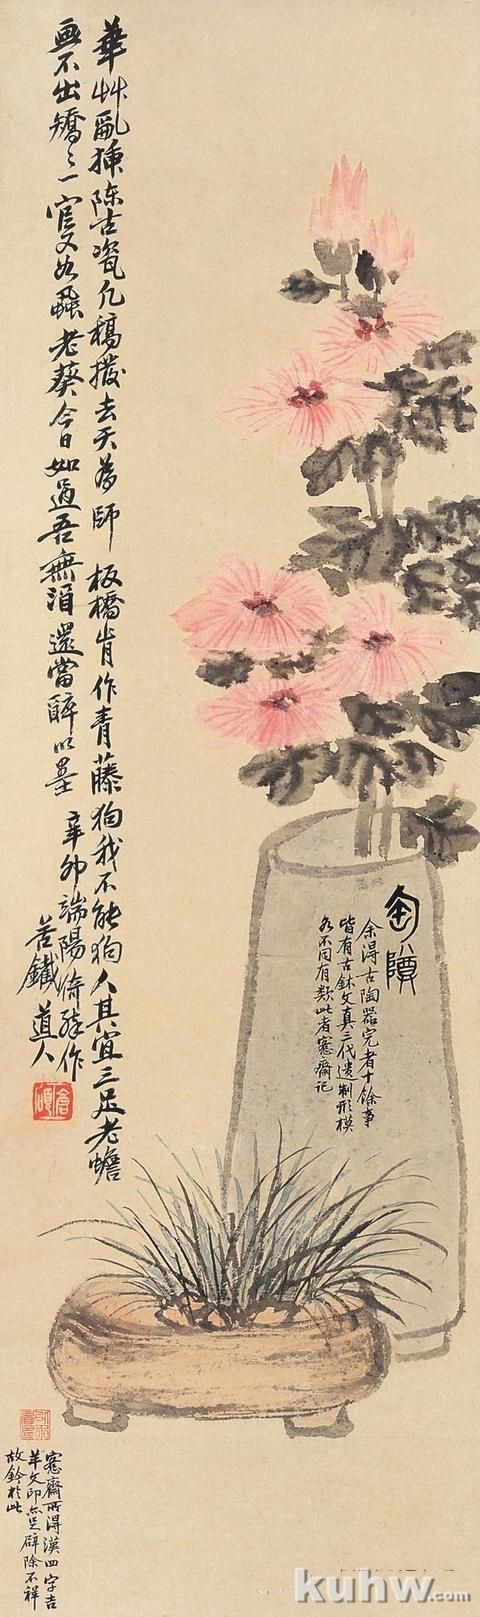 華艸亂插陳古瓷凡稿撥去天為師板橋肯作青藤狗我不能狗人其宜三足老蟾
畫不出矯〻一官又如老葵今日如過吾無酒還當醉以墨辛卯端陽倚醉作
苦鐵道人
倉碩
余得古陶器完者十餘事
皆有古鉥文真三代遺制形模
各不同有類此者愙齋記
愙齋所得漢四字吉
羊文印亦足辟除不祥
故鈐於此
kuhw.com